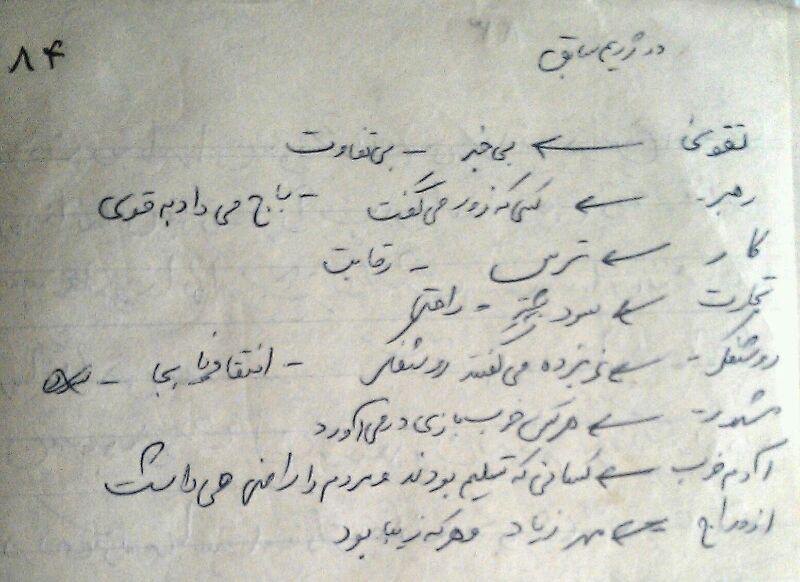 ۸۴
در رژیم سابق
تقوی ← بی خبر - بی تفاوت
رهبر ← کسی که زور می گفت - باج می داد به قوی
کار ← ترس - رقابت
تجارت ← سود - راحتی
روشنفکر ← غربزده می گفتند روشنفکر - انتقاد بجا -
← هر کس خوب بازی در می آورد
آدم خوب ← کسانی که تسلیم بودند و مردم را راضی می داشت
ازدواج ← مهر زیاد و هر که زیبا بود